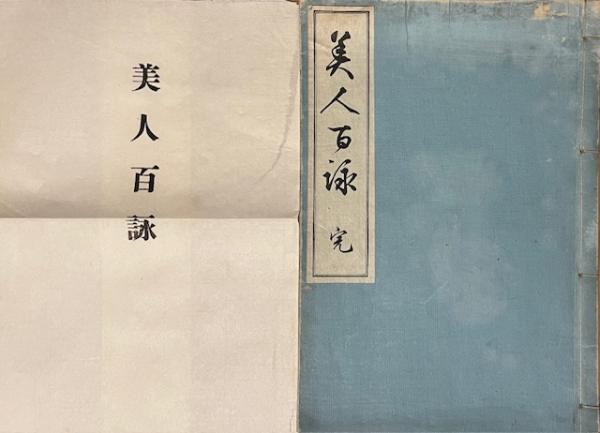 美人百詠
美人百詠 完